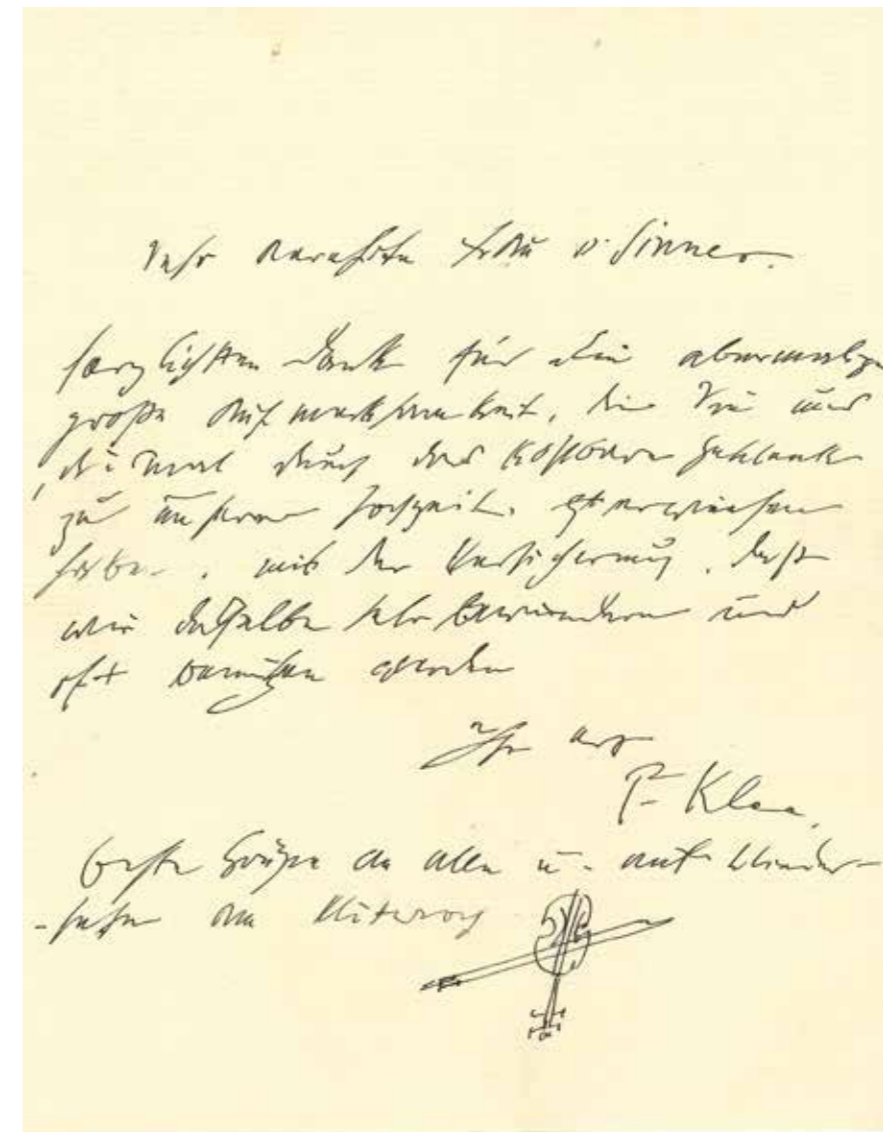 Sehr verehrte Frau v. Sinner.
herzlichsten Dank für die abermalige
große Aufmerksamkeit, die Sie uns
durch das kostbare Geschenk
zu unserer Hochzeit. erwiesen
haben. mit der Versicherung, daß
wir dasselbe sehr bewundern und
oft benützen werden
Ihr erg
P. Klee.
beste Grüße an alle u. auf Wieder-
-sehn am Mittwoch